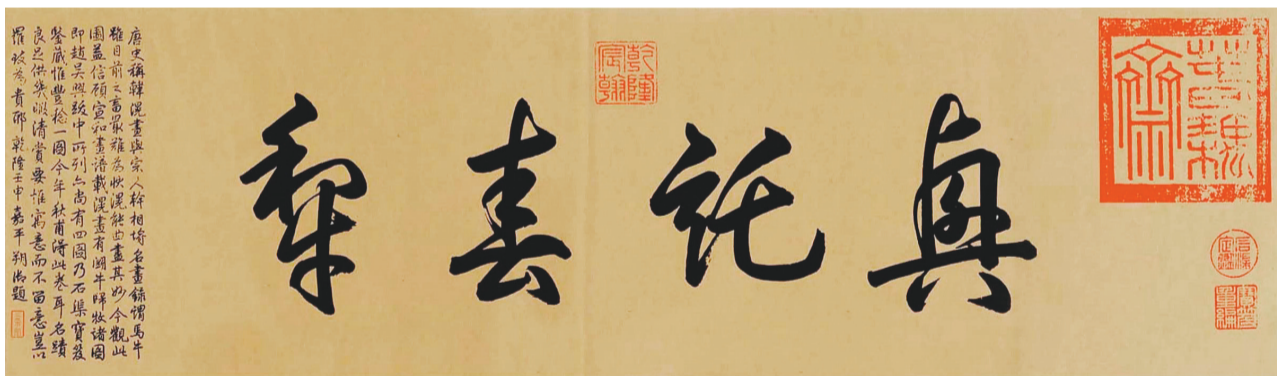 春耦齋
石渠定鑑
寶笈重編
乾隆宸翰
興託春犁
唐史稱韓滉畫與宗人幹相埒名畫錄謂馬牛
雖目前之畜最難為状滉能曲盡其妙今觀此
圖益信顧宣和畫譜載滉畫有闘牛歸牧諸圖
即趙吳興跋中所列亦尚有四圖乃石渠寶笈
鑒藏惟豐稔一圖今年秋甫得此卷耳名蹟
良足供幾暇清賞要惟寓意而不留意豈以
羅致為貴耶乾隆壬申嘉平朔御題